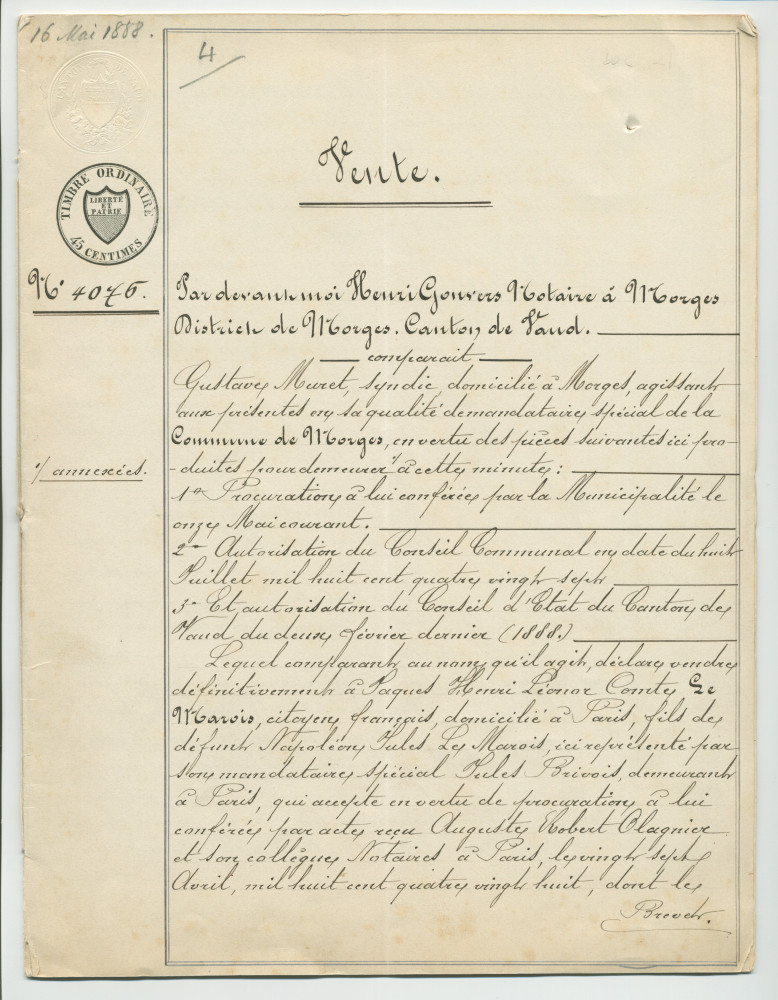 16 Mai 1888.
4
Vente.
TIMBRE ORDINAIRE
LIBERTÉ
ET
PATRIE
45 CENTIMES
N° 4076.
Par devant moi Henri Gonvers Notaire à Morges
District de Morges. Canton de Vaud.
comparait
Gustave Muret, syndic, domicilié à Morges, agissant
aux présentes en sa qualité de mandataire spécial de la
Commune de Morges, en vertu des pièces suivantes ici pro-
1/ annexées.
-duites pour demeurer 1/ à cette minute :
1° Procuration à lui conférée par la Municipalité le
onze Mai courant.
2° Autorisation du Conseil Communal en date du huit
Juillet mil huit cent quatre vingt sept
3° Et autorisation du Conseil d'Etat du Canton de
Vaud du deux février dernier (1888.)
Lequel comparant au nom qu'il agit, déclare vendre
définitivement à Jaques Henri Léonor Comte Le
Marois, citoyen français, domicilié à Paris, fils de
défunt Napoléon Jules Le Marois, ici représenté par
son mandataire spécial Jules Brivois, demeurant
à Paris, qui accepte en vertu de procuration à lui
conférée par acte reçu Auguste Robert Olagnier
et son collègue Notaires à Paris, le vingt sept
Avril, mil huit cent quatre vingt huit, dont le
Brevet.